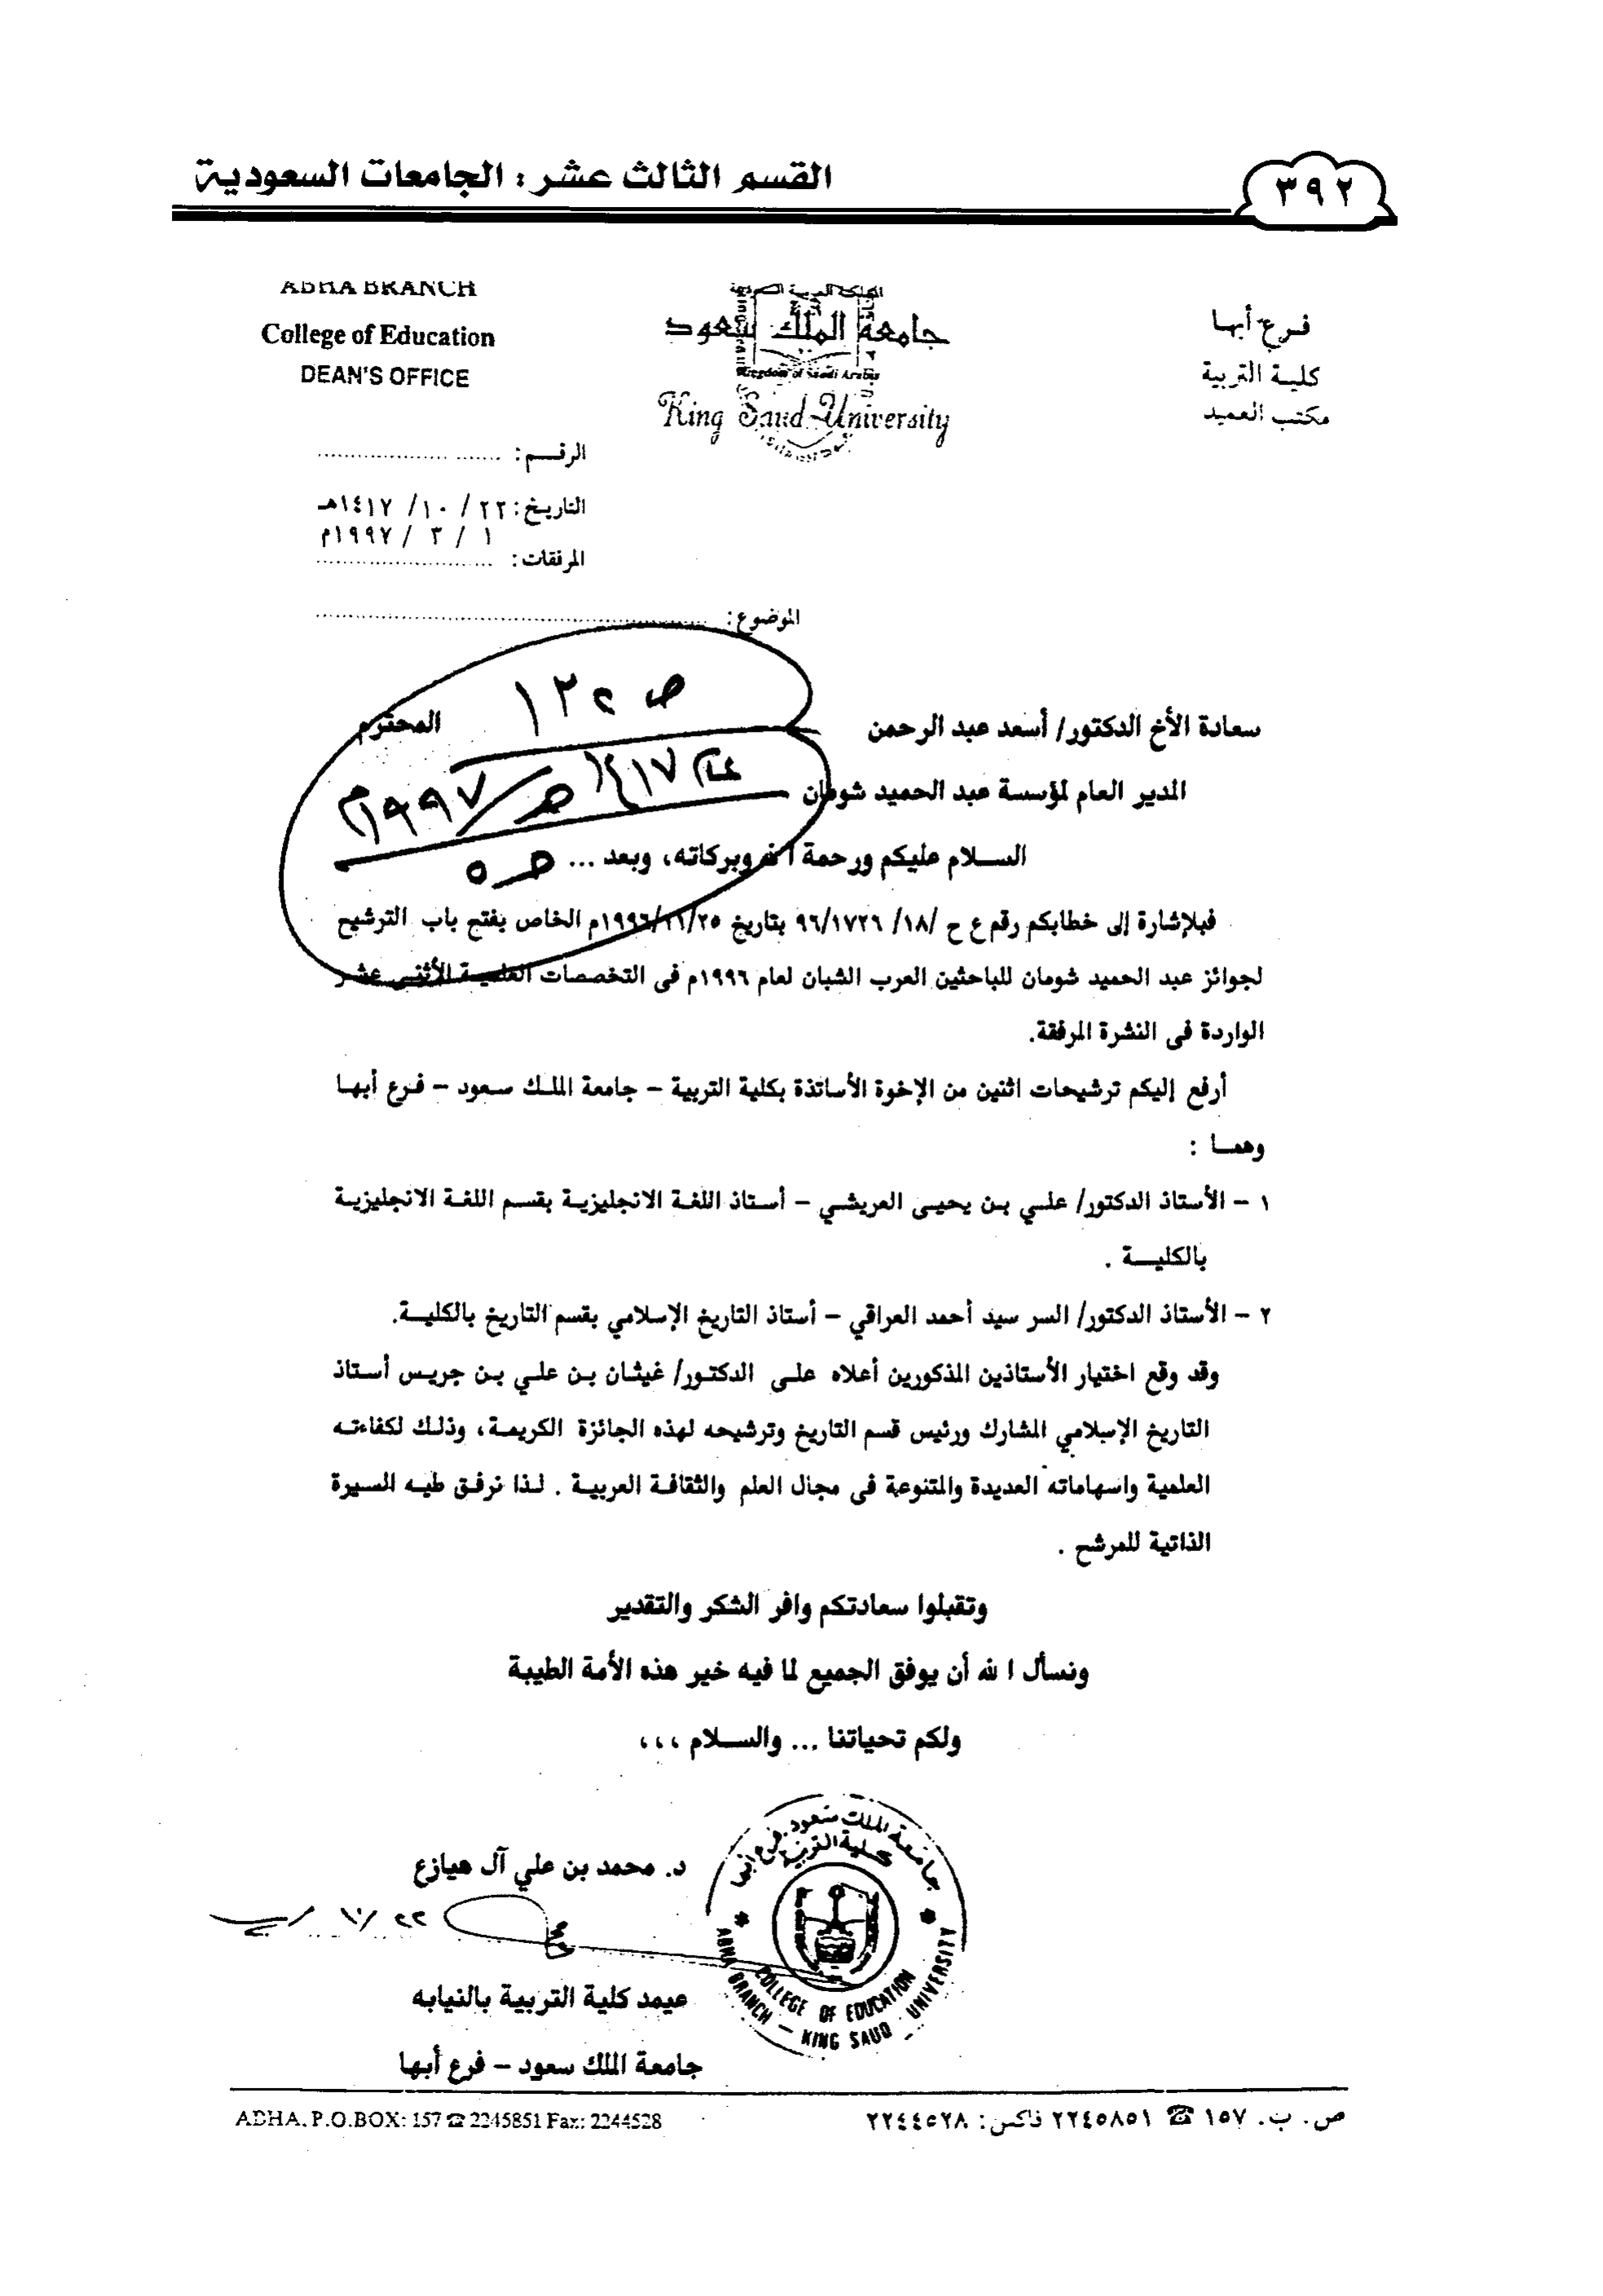 القسم الثالث عشر: الجامعات السعودية
٣٩٢
ABHA BRANCH
College of Education
DEAN'S OFFICE
المملكة العربية السعودية
جامعة الملك سعود
Kingdom of Saudi Arabia
King Saud University
فرع أبها
كلية التربية
مكتب العميد
الرقم:
التاريخ: ٢٢ / ١٠/ ١٤١٧هـ
١ / ٣ / ١٩٩٧م
المرفقات:
الموضوع:
عام ١٤١٧هـ/١٩٩٧م
سعادة الأخ الدكتور/ أسعد عبد الرحمن المحترم
المدير العام لمؤسسة عبد الحميد شومان
السلام عليكم ورحمة الله وبركاته، وبعد ...
فبلإشارة إلى خطابكم رقم ع ح /١٨/ ٩٦/١٧٢٦ بتاريخ ١٩٩٦/١١/٢٥م الخاص بفتح باب الترشيح
لجوائز عبد الحميد شومان للباحثين العرب الشبان لعام ١٩٩٦م فى التخصصات العلمية الأثنى عشر
الواردة فى النشرة المرفقة.
أرفع إليكم ترشيحات اثنين من الإخوة الأساتذة بكلية التربية – جامعة الملك سعود – فرع أبها
وهما :
١ – الأستاذ الدكتور/ علي بن يحيى العريشي – أستاذ اللغة الانجليزية بقسم اللغة الانجليزية
بالكلية .
٢ – الأستاذ الدكتور/ السر سيد أحمد العراقي – أستاذ التاريخ الإسلامي بقسم التاريخ بالكلية.
وقد وقع اختيار الأستاذين المذكورين أعلاه على الدكتور/ غيثان بن علي بن جريس أستاذ
التاريخ الإسلامي المشارك ورئيس قسم التاريخ وترشيحه لهذه الجائزة الكريمة، وذلك لكفاءته
العلمية واسهاماته العديدة والمتنوعة فى مجال العلم والثقافة العربية . لذا نرفق طيه السيرة
الذاتية للمرشح .
وتقبلوا سعادتكم وافر الشكر والتقدير
ونسأل الله أن يوفق الجميع لما فيه خير هذه الأمة الطيبة
ولكم تحياتنا ... والسلام ،،،
جامعة الملك سعود. فرع أبها
كلية التربية
COLLEGE OF EDUCATION
ABHA BRANCH – KING SAUD UNIVERSITY
د. محمد بن علي آل هيازع
عيمد كلية التربية بالنيابه
جامعة الملك سعود – فرع أبها
ABHA. P.O.BOX: 157 ☎ 2245851 Fax: 2244528
ص. ب. ١٥٧ ☎ ٢٢٤٥٨٥١ فاكس: ٢٢٤٤٥٢٨